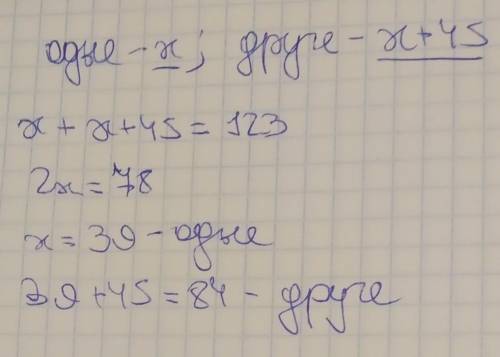 одне - x; друге - x+45
x + x + 45 = 123
2x = 78
x = 39 - одне
39 + 45 = 84 - друге